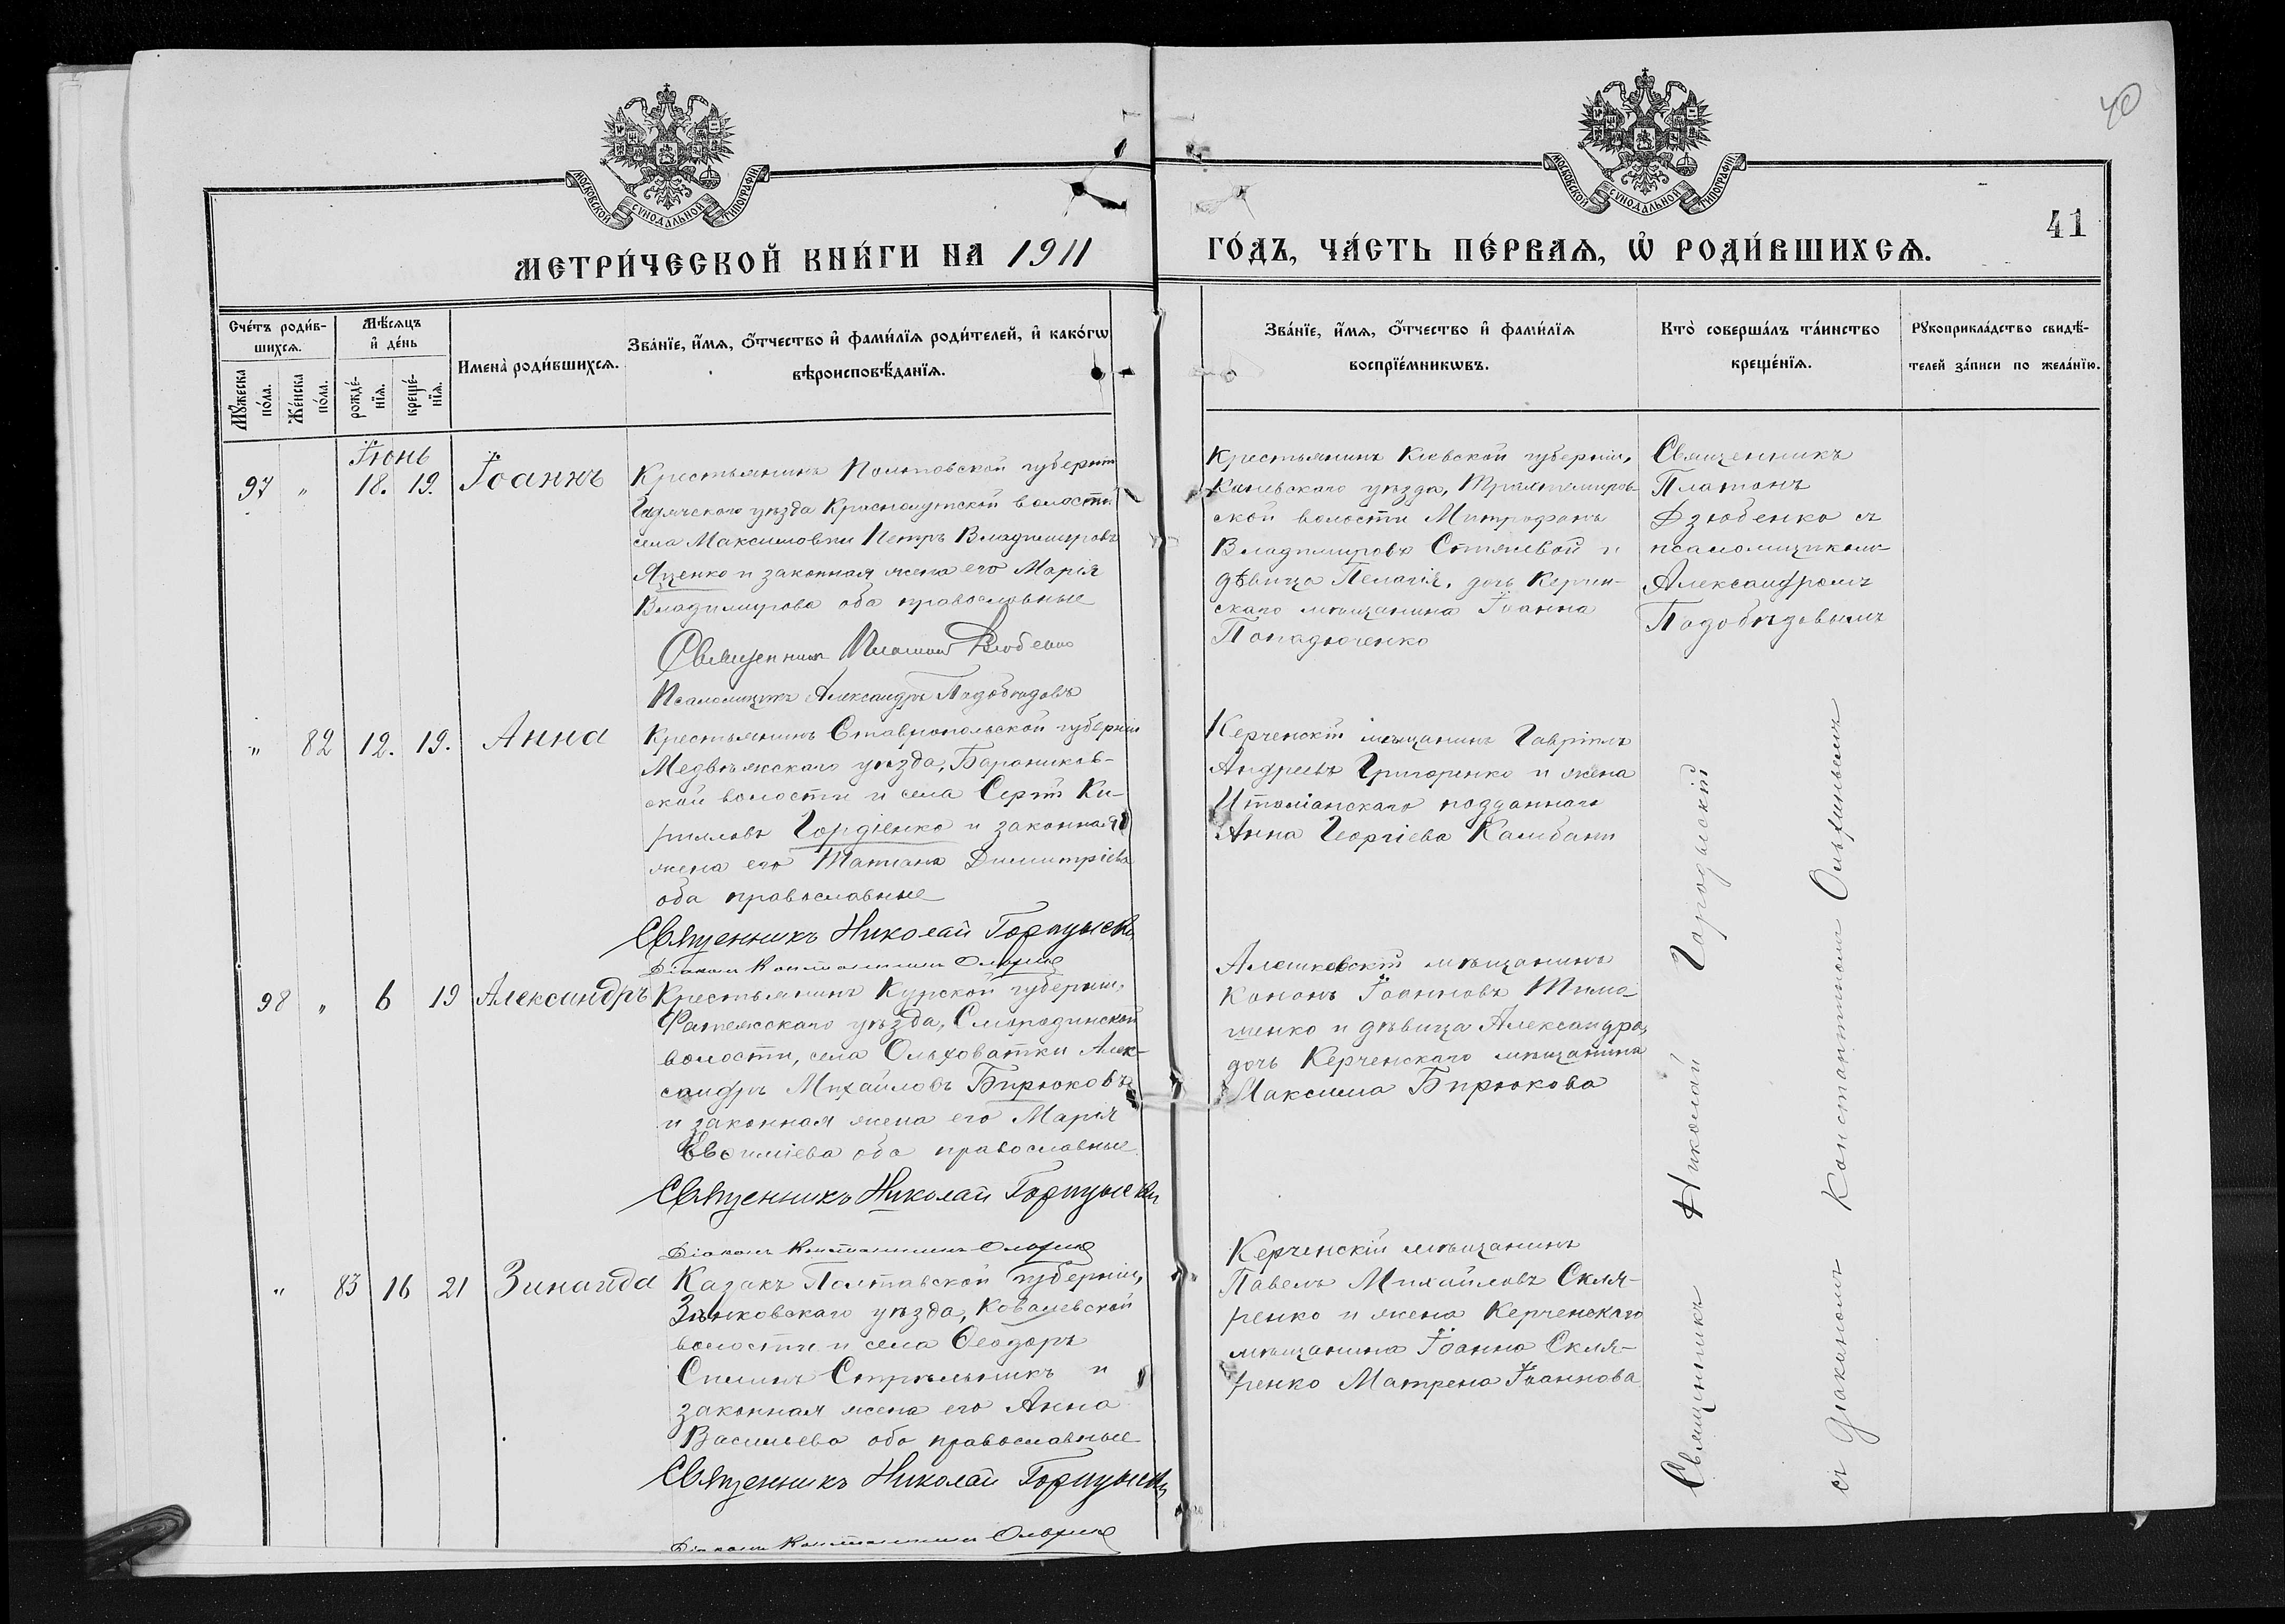 40
МОСКОВСКОЙ СѴНОДАЛЬНОЙ ТИПОГРАФІИ
МОСКОВСКОЙ СѴНОДАЛЬНОЙ ТИПОГРАФІИ
41
МЕТРИ́ЧЕСКОЙ КНИ́ГИ НА 1911
ГО́ДЪ, ЧА́СТЬ ПЕ́РВАѦ, Ѡ҆ РОДИ́ВШИХСѦ.
Сче́тъ роди́в-
шихсѧ.
Мꙋ́жеска
по́ла.
Же́нска
по́ла.
Мѣ́сѧцъ
и҆ де́нь
рожде́-
нїѧ.
креще́-
нїѧ.
Имена̀ роди́вшихсѧ.
Зва́нїе, и҆́мѧ, ѻ҆́тчество и҆ фами́лїѧ роди́телей, и҆ како́гѡ
вѣроисповѣ́данїѧ.
Зва́нїе, и҆́мѧ, ѻ҆́тчество и҆ фами́лїѧ
воспрїе́мникѡвъ.
Кто̀ соверша́лъ та́инство
креще́нїѧ.
Рꙋкоприкла́дство свидѣ́-
телей за́писи по жела́нїю.
Іюнь
97 " 18. 19. Іоаннъ
Крестьянинъ Полтавской губерніи
Гадячскаго уѣзда Краснолутской волости
села Максимовки Петръ Владиміровъ
Яценко и законная жена его Марія
Владимірова оба православные
Священникъ Платонъ Дзюбенко
Псаломщикъ Александръ Подобѣдовъ
Крестьянинъ Кіевской губерніи,
Каневскаго уѣзда, Трахтемиров-
ской волости Митрофанъ
Владиміровъ и
дѣвица Пелагія, дочь Керчен-
скаго мѣщанина Іоанна
Священникъ
Платонъ
Дзюбенко съ
псаломщикомъ
Александромъ
Подобѣдовымъ
" 82 12. 19. Анна
Крестьянинъ Ставропольской губерніи
Медвѣжскаго уѣзда, Бараников-
ской волости и села Сергій Ки-
рилловъ Гордіенко и законная
жена его Татіана Димитріева
оба православные
Священникъ Николай Городыскій
Діаконъ Константинъ Ольхинъ
Керченскій мѣщанинъ Гавріилъ
Андреевъ Григоренко и жена
Италіанскаго подданнаго
Анна Георгіева Камбани
98 " 6 19 Александръ
Крестьянинъ Курской губерніи,
Фатежскаго уѣзда, Смородинской
волости, села Ольховатки Алек-
сандръ Михайловъ Бирюковъ
и законная жена его Марія
Евѳиміева оба православные
Священникъ Николай Городыскій
Діаконъ Константинъ Ольхинъ
Алешковскій мѣщанинъ
Кононъ Іоанновъ Тима-
шенко и дѣвица Александра,
дочь Керченскаго мѣщанина
Максима Бирюкова
" 83 16 21 Зинаида
Казакъ Полтавской губерніи,
Зѣньковскаго уѣзда, Ковалевской
волости и села Ѳеодоръ
Силинъ Стрѣльникъ и
законная жена его Анна
Васильева оба православные
Священникъ Николай Городыскій
Діаконъ Константинъ Ольхинъ
Керченскій мѣщанинъ
Павелъ Михайловъ Скля-
ренко и жена Керченскаго
мѣщанина Іоанна Скля-
ренко Матрена Іоаннова
Священникъ Николай Городыскій
съ діакономъ Константиномъ Ольхинымъ